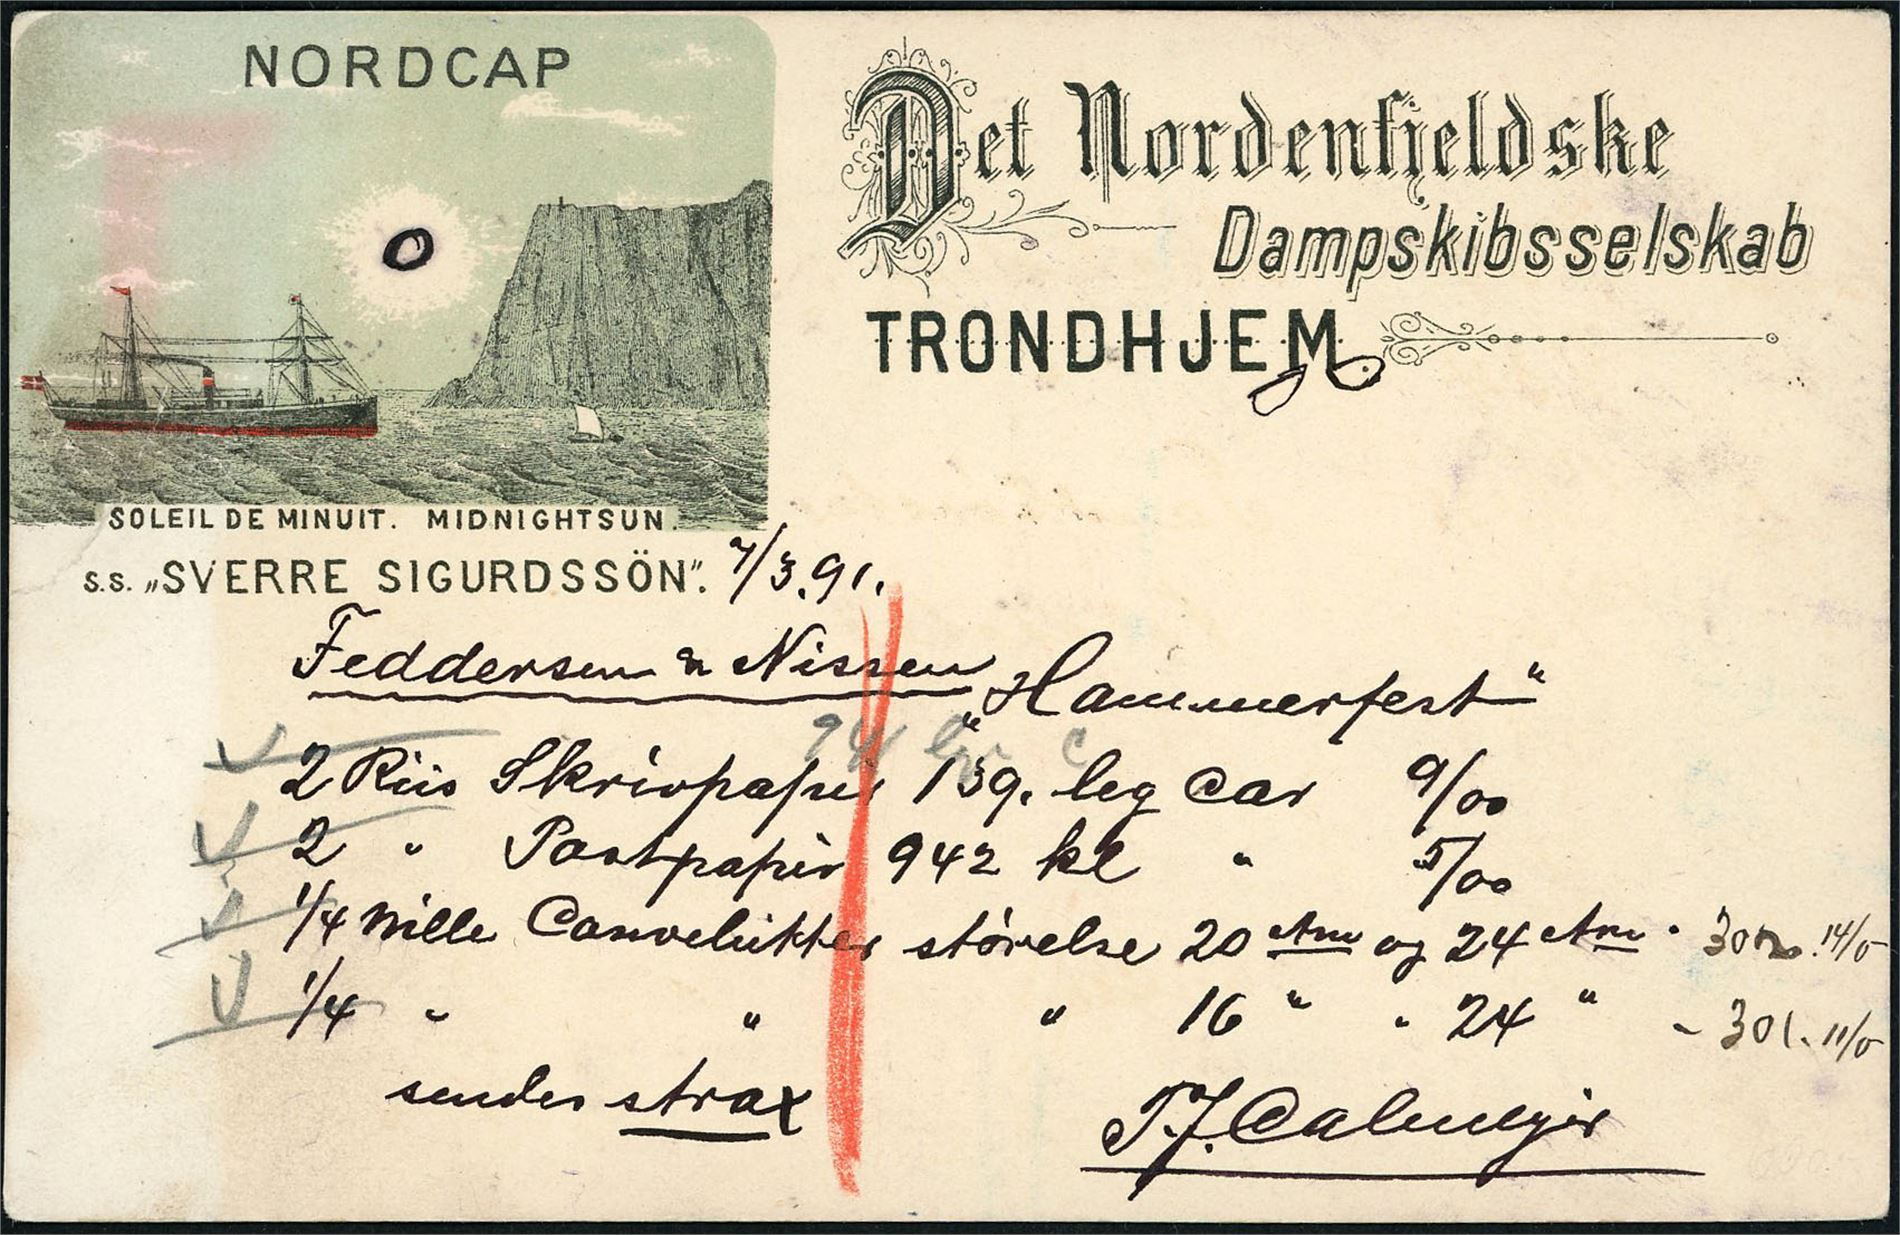 NORDCAP
SOLEIL DE MINUIT. MIDNIGHTSUN.
S.S. „SVERRE SIGURDSSÖN".
Det Nordenfjeldske
Dampskibsselskab
TRONDHJEM
7/3.91.
Feddersen & Nissen „Hammerfest"
2 Riis Skrivpapir 139. leg Car 9/00
2 " Postpapir 942 kl " 5/00
1/4 Mille størrelse 20 og 24 14/0
1/4 " " " 16 " " 24 " - 301. 11/0
sendes strax
T.J. Calmeyer